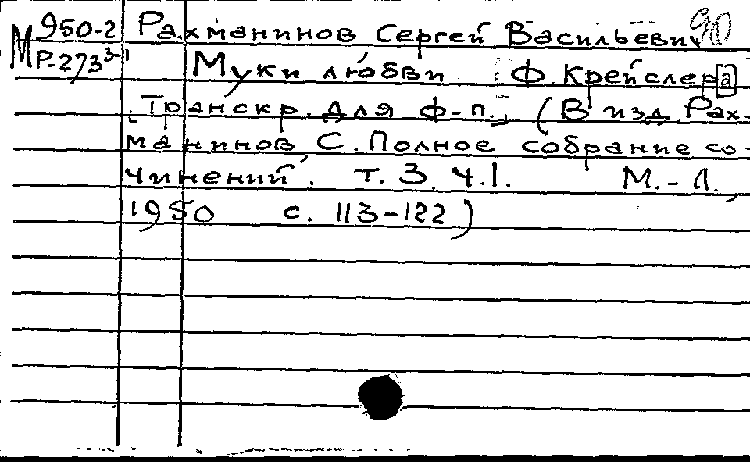 М 950-2 Рахманинов Сергей Васильевич 90
Р-273 3-1 Муки любви : Ф. Крейслер[а]
[Транскр. для ф-п.] (В изд Рах-
манинов С. Полное собрание со-
чинений. т. 3 ч.1. М.-Л.,
1950 с. 113-122)